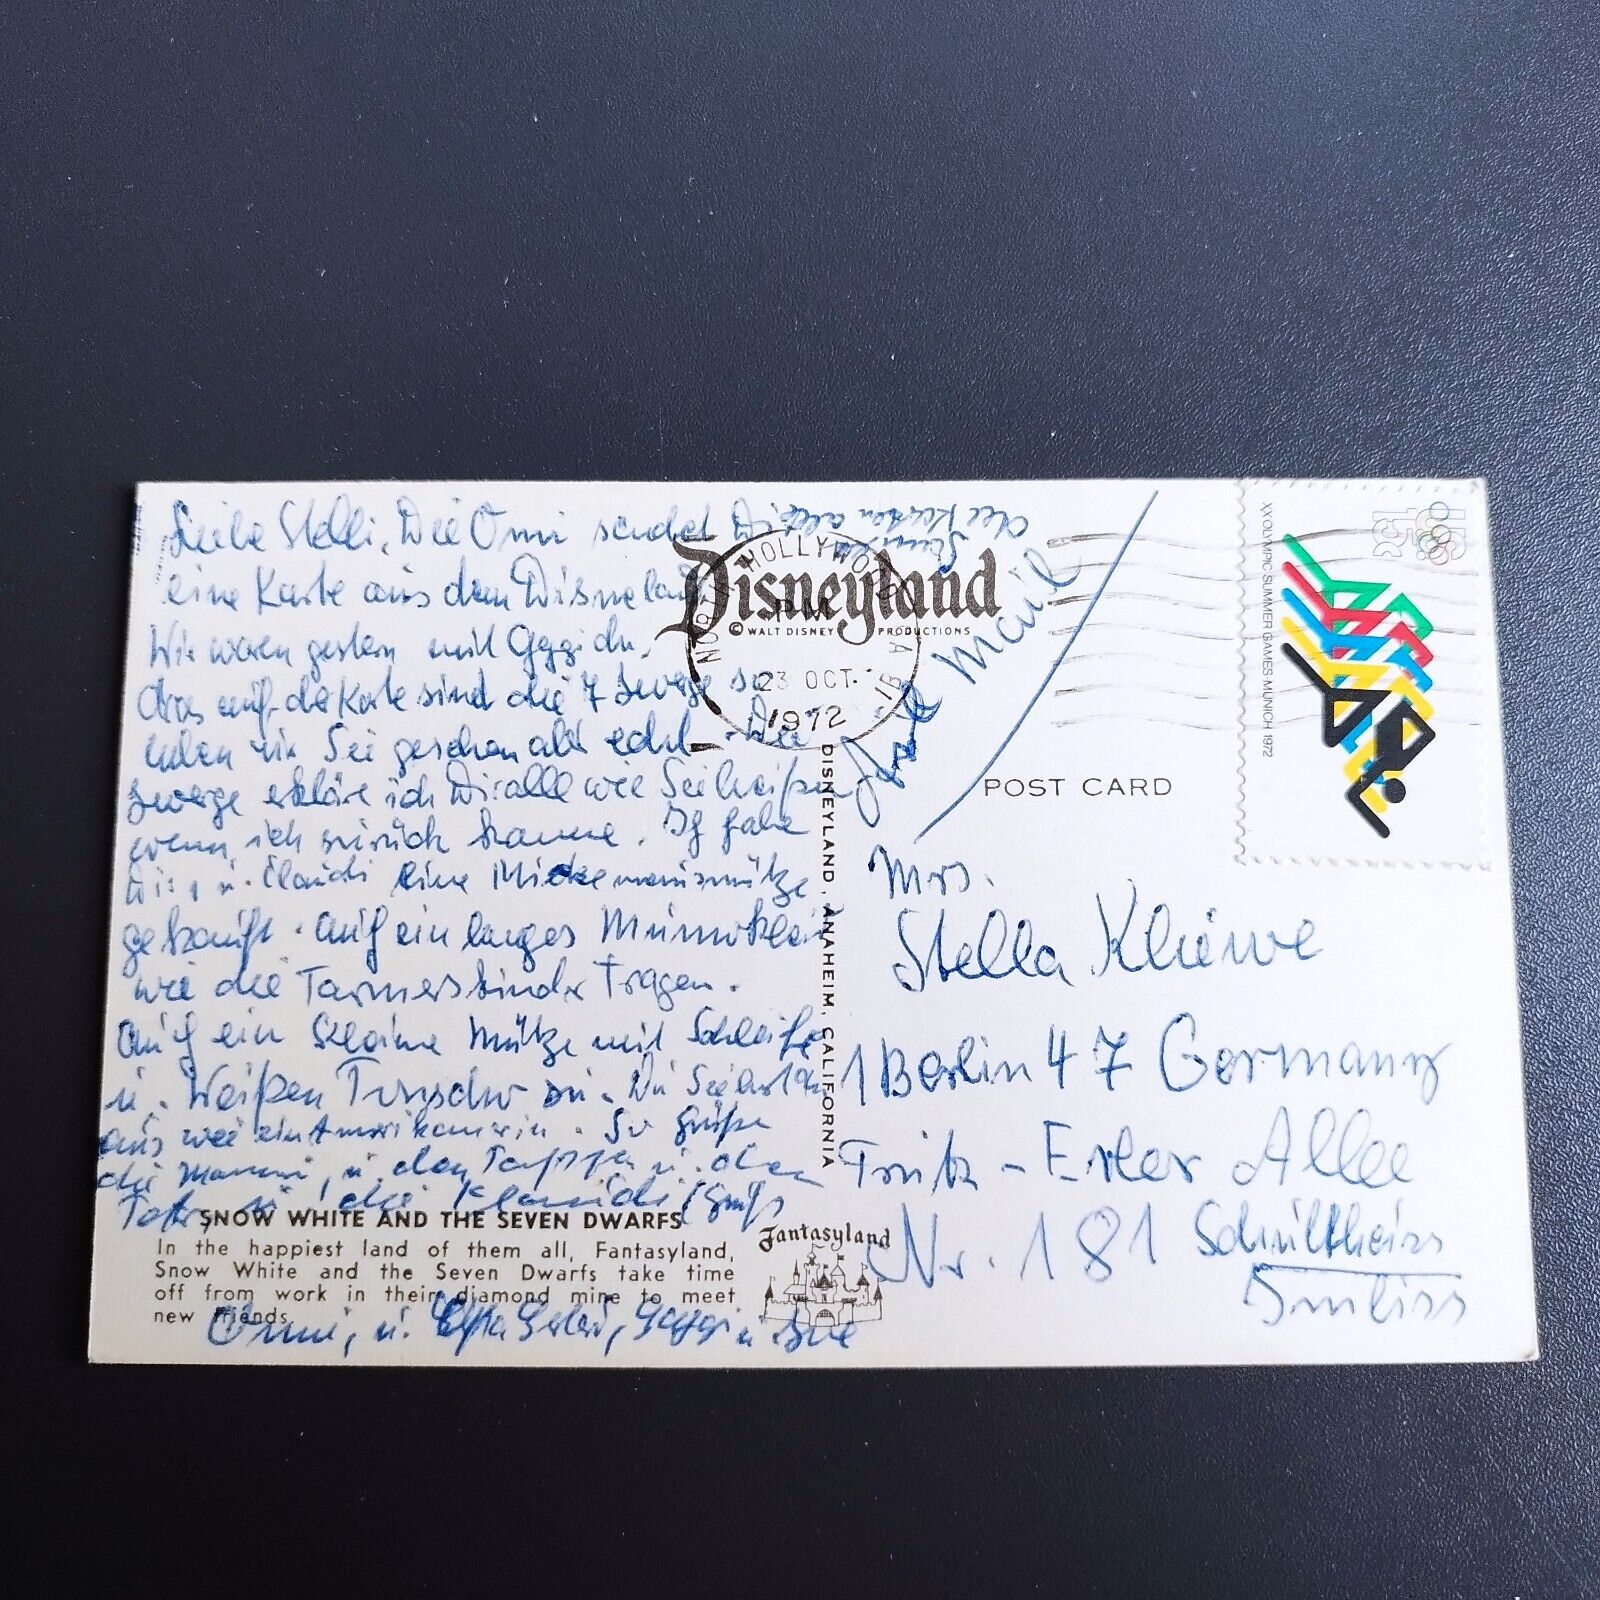 Liebe Stelli, Die Omi sendet Dir
eine Karte aus dem Disneland
Wir waren gestern mit
das auf der Karte sind die 7 Zwerge so
haben wir Sie gesehen alle echt. Die
Zwerge erkläre ich Dir alle wie Sie heißen
wenn ich zurück komme. Ich habe
Dir, u. Claudi eine Mickemausmütze
gekauft. auch ein langes
wie die Farmerskinder Tragen.
auch ein kleine Mütze mit Schleife
u. Weißen
aus wie ein Amerikanerin. So Grüße
die Mammi, u. den u. den
u. die Klaudi Gruß
Omi, u.
alle Karten alle
Disneyland
© WALT DISNEY PRODUCTIONS
NORTH HOLLYWOOD CA
PM
23 OCT
1972
Mail
POST CARD
XX OLYMPIC SUMMER GAMES MUNICH 1972
US 15c
DISNEYLAND, ANAHEIM, CALIFORNIA
Mrs.
Stella Kliewe
1 Berlin 47 Germany
Fritz-Erler Allee
Nr. 181
SNOW WHITE AND THE SEVEN DWARFS
In the happiest land of them all, Fantasyland,
Snow White and the Seven Dwarfs take time
off from work in their diamond mine to meet
new friends.
Fantasyland